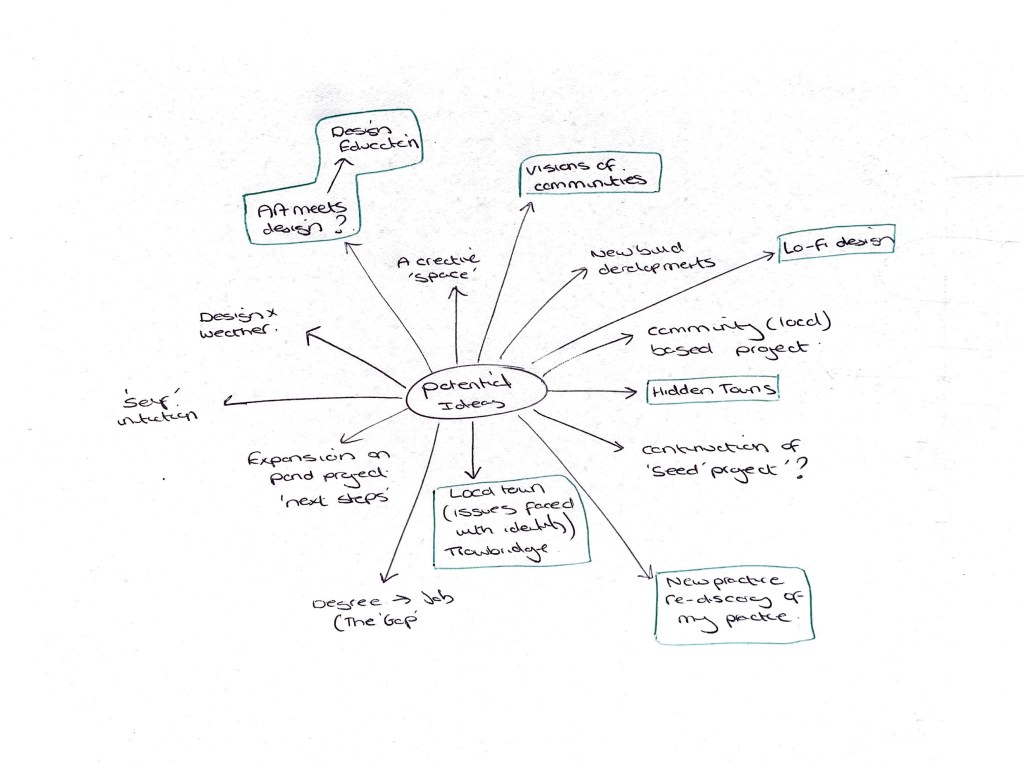 Design
Education
AA meets
design?
Visions of
communities
A creative
'space'
New build
developments
Lo-fi design
Design x
weather.
community (local)
based project.
potential
Ideas
Hidden Towns
'Self'
Expansion on
pond project
'next steps'
continuation of
'seed' project'?
Local town
(issues faced
with identity)
Trowbridge.
Degree → Job
(The 'Gap'
New practice
re-discovery of
my practice.